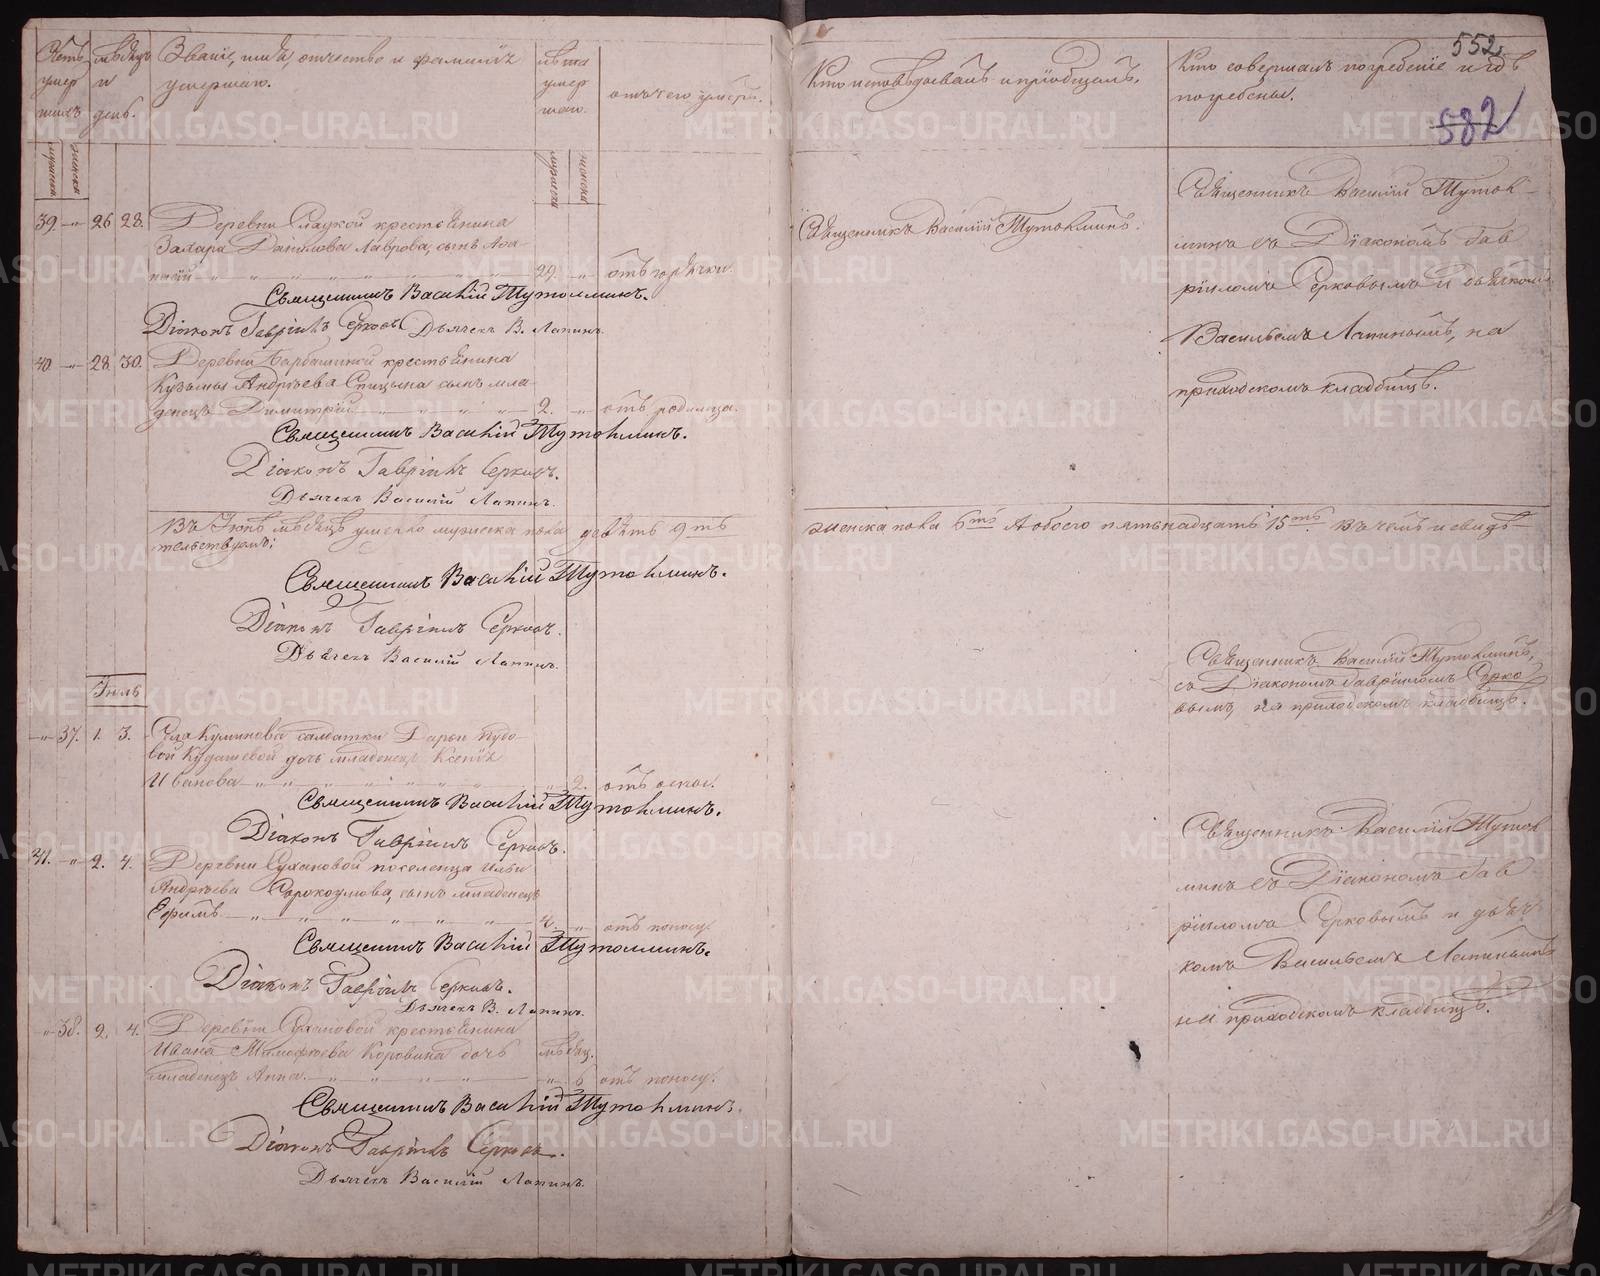 552.
582
Счетъ умер шихъ
мѣсяцъ и день.
Званіе, имя, отчество и фамилія
умершаго.
лѣта умер шаго.
отъ чего умеръ.
Кто исповѣдовалъ и пріобщалъ.
Кто совершалъ погребеніе и гдѣ
погребены.
мужеска
женска
мужеска
женска
39 -„- 26 28. Деревни Сладкой крестьянина
Захара Данилова Лаврова, сынъ Аѳа-
насій 29. „ отъ горячки.
Священникъ Василій Тутолминъ.
Священникъ Василій Тутолминъ.
Діаконъ Гавріилъ Серковъ Дьячекъ В. Лапинъ.
Священникъ Василій Тутол-
минъ съ Діакономъ Гав
ріиломъ Серковымъ и дьячкомъ
Васильемъ Лапинымъ, на
приходскомъ кладбищѣ.
40. -„- 28 30. Деревни крестьянина
Кузьмы Андрѣева Спицына сынъ мла-
денецъ Димитрій 2. „ отъ родимца.
Священникъ Василій Тутолминъ.
Діаконъ Гавріилъ Серковъ.
Дьячекъ Василій Лапинъ.
Въ Іюнѣ мѣсяцѣ умерло мужеска пола девять 9ть женска пола 6ть А обоего пятьнадцать 15ть. Въ чемъ и свидѣ-
тельствуемъ:
Священникъ Василій Тутолминъ.
Діаконъ Гавріилъ Серковъ.
Дьячекъ Василій Лапинъ.
Іюль
-„- 37. 1. 3. Села солдатки Дарьи
вой Кудашевой дочь младенецъ Ксенія
Иванова „ 2. отъ оспы.
Священникъ Василій Тутолминъ.
Діаконъ Гавріилъ Серковъ.
Священникъ Василій Тутолминъ,
съ Діакономъ Гавріиломъ Серко
вымъ, на приходскомъ кладбищѣ.
41. „ 2. 4. Деревни Сухановой поселенца Ильи
Андрѣева Сорокоумова, сынъ младенецъ
Ефимъ 4. „ отъ поносу.
Священникъ Василій Тутолминъ.
Діаконъ Гавріилъ Серковъ.
Дьячекъ В. Лапинъ.
Священникъ Василій Тутол
минъ съ Діакономъ Гав
ріиломъ Серковымъ и дьяч
комъ Васильемъ Лапинымъ
на приходскомъ кладбищѣ.
„ 38. 2. 4. Деревни Сухановой крестьянина
Ивана Тимофѣева Коровина дочь мѣсяц.
младенецъ Анна. „ 6 отъ поносу.
Священникъ Василій Тутолминъ.
Діаконъ Гавріилъ Серковъ.
Дьячекъ Василій Лапинъ.
METRIKI.GASO-URAL.RU